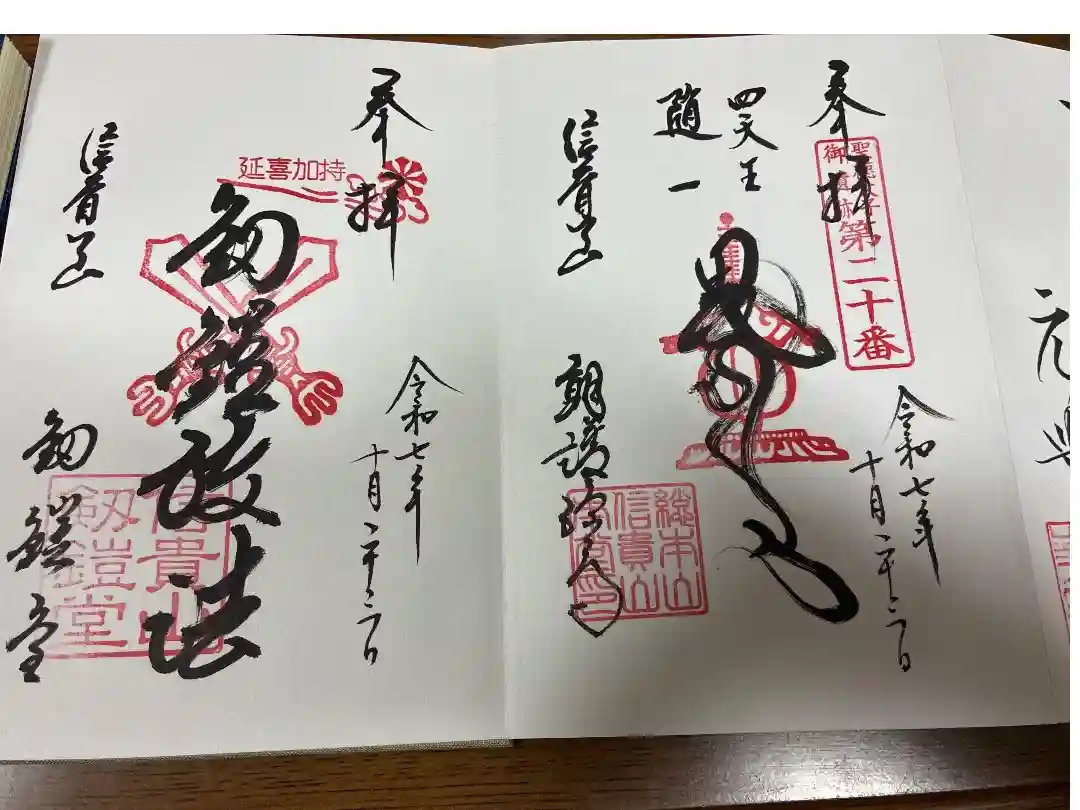 奉拝
聖徳太子
御遺跡
第二十番
四天王
随一
信貴山
朝護孫子寺
令和七年
十月二十二日
總本山
信貴山
奉拝
延喜加持
釼鎧護法
信貴山
釼鎧堂
令和七年
十月二十二日
信貴山
剱鎧堂
元興